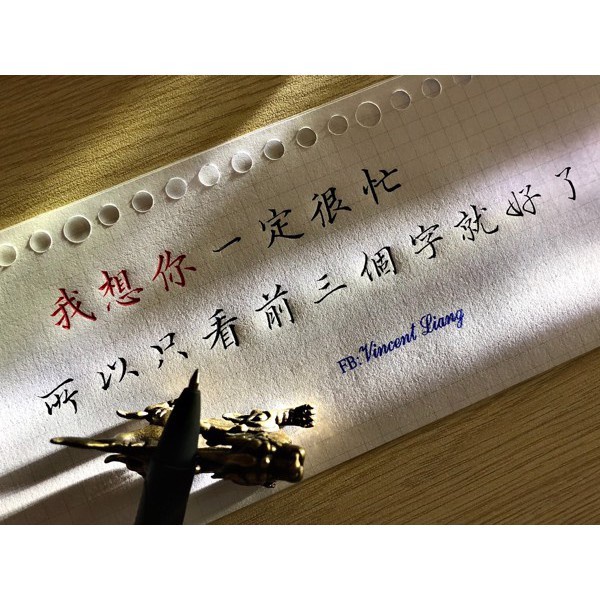 我想你一定很忙
所以只看前三個字就好了
FB: Vincent Liang